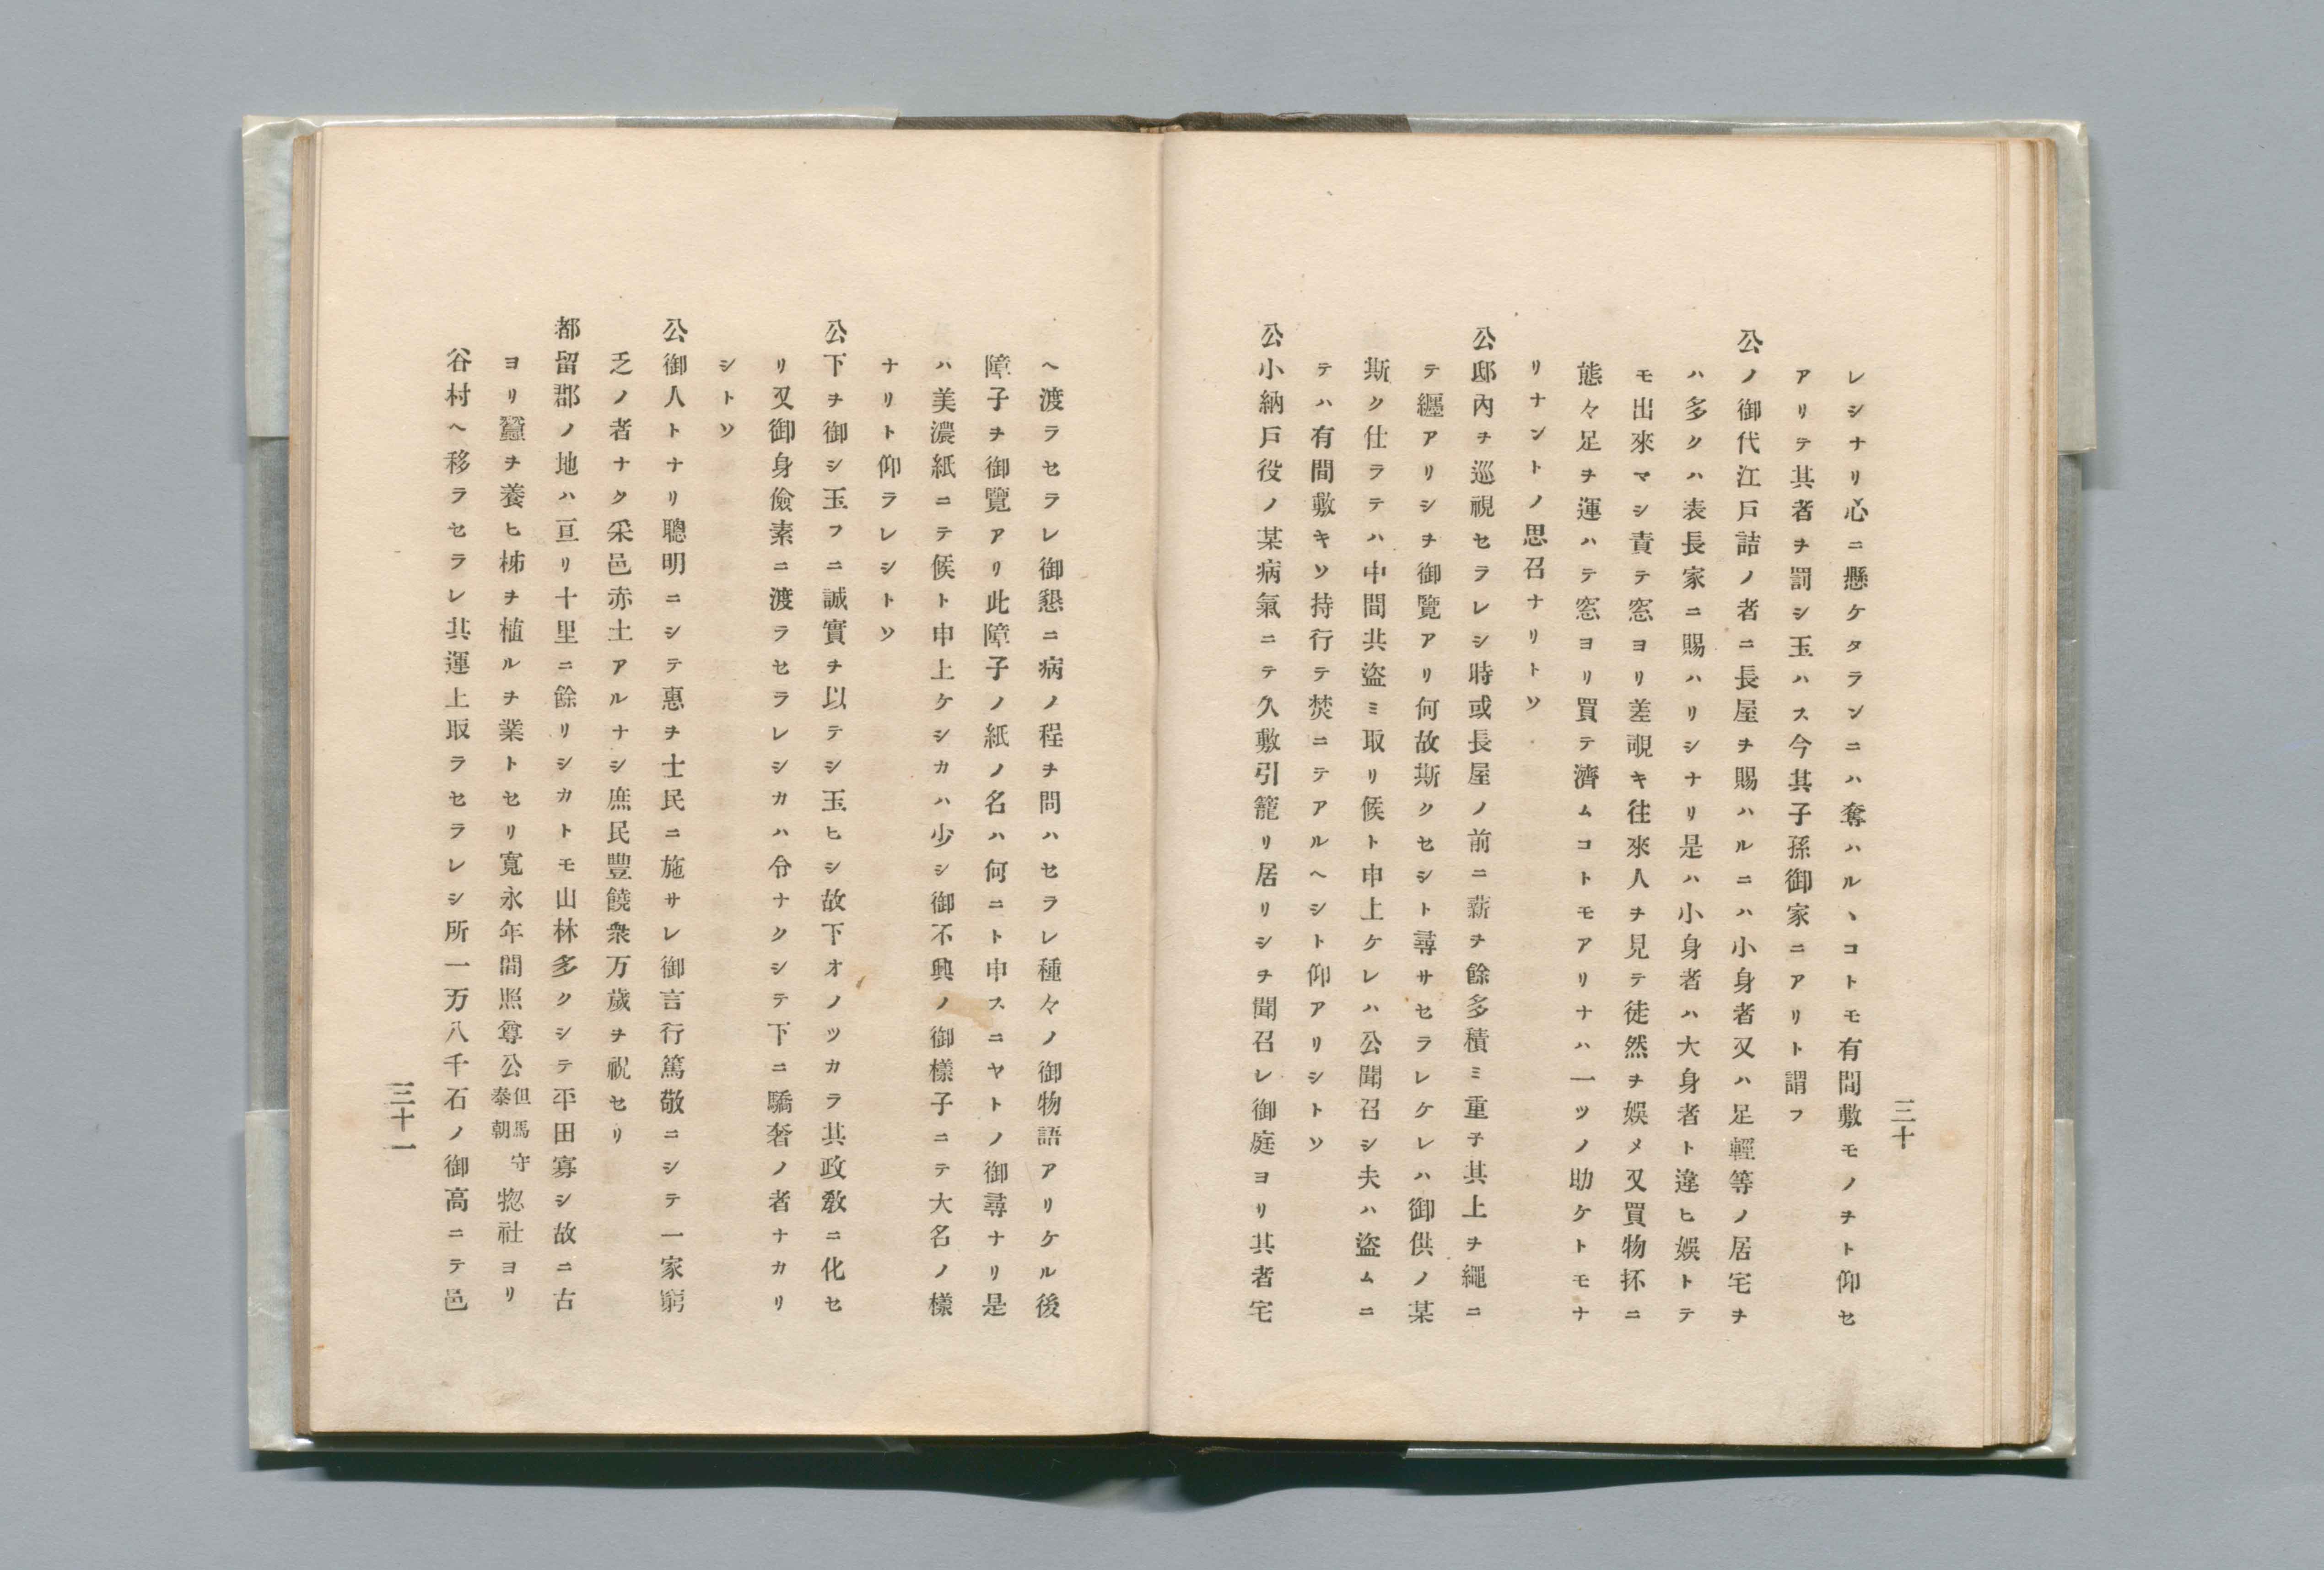 三十
レシナリ心ニ懸ケタランニハ奪ハルヽコトモ有間敷モノヲト仰セ
アリテ其者ヲ罰シ玉ハス今其子孫御家ニアリト謂フ
公ノ御代江戸詰ノ者ニ長屋ヲ賜ハルニハ小身者又ハ足輕等ノ居宅ヲ
ハ多クハ表長家ニ賜ハリシナリ是ハ小身者ハ大身者ト違ヒ娯トテ
モ出來マシ責テ窓ヨリ差覗キ往來人ヲ見テ徒然ヲ娯メ又買物抔ニ
態々足ヲ運ハテ窓ヨリ買テ濟ムコトモアリナハ一ツノ助ケトモナ
リナントノ思召ナリトソ
公邸內ヲ巡視セラレシ時或長屋ノ前ニ薪ヲ餘多積ミ重子其上ヲ繩ニ
テ纒アリシヲ御覽アリ何故斯クセシト尋サセラレケレハ御供ノ某
斯ク仕ラテハ中間共盜ミ取リ候ト申上ケレハ公聞召シ夫ハ盜ムニ
テハ有間敷キソ持行テ焚ニテアルヘシト仰アリシトソ
公小納戸役ノ某病氣ニテ久敷引籠リ居リシヲ聞召レ御庭ヨリ其者宅
ヘ渡ラセラレ御懇ニ病ノ程ヲ問ハセラレ種々ノ御物語アリケル後
障子ヲ御覽アリ此障子ノ紙ノ名ハ何ニト申スニヤトノ御尋ナリ是
ハ美濃紙ニテ候ト申上ケシカハ少シ御不興ノ御樣子ニテ大名ノ樣
ナリト仰ラレシトソ
公下ヲ御シ玉フニ誠實ヲ以テシ玉ヒシ故下オノツカラ其政敎ニ化セ
リ又御身儉素ニ渡ラセラレシカハ令ナクシテ下ニ驕奢ノ者ナカリ
シトソ
公御人トナリ聰明ニシテ惠ヲ士民ニ施サレ御言行篤敬ニシテ一家窮
乏ノ者ナク采邑赤土アルナシ庶民豐饒衆万歲ヲ祝セリ
都留郡ノ地ハ亘リ十里ニ餘リシカトモ山林多クシテ平田寡シ故ニ古
ヨリ蠶ヲ養ヒ𣑥ヲ植ルヲ業トセリ寬永年間照尊公但馬守泰朝惣社ヨリ
谷村ヘ移ラセラレ其運上取ラセラレシ所一万八千石ノ御高ニテ邑
三十一